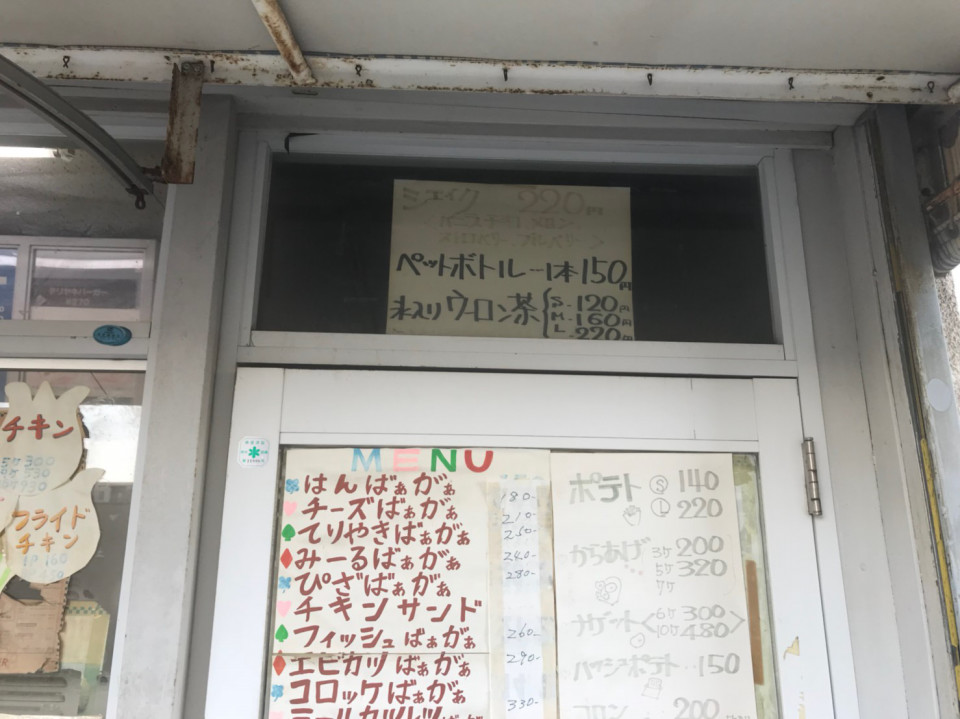 シェイク 220円
ペットボトル…1本150円
氷入りウーロン茶 S-120円
M-160円
L-220円
MENU
はんばぁがぁ 180-
チーズばぁがぁ 210-
てりやきばぁがぁ 250-
みーるばぁがぁ 240-
ぴざばぁがぁ 280-
チキンサンド
フィッシュばぁがぁ 260-
エビカツばぁがぁ 290-
コロッケばぁがぁ
330-
ポテト Ⓢ 140
Ⓛ 220
からあげ 3ケ 200
5ケ 320
7ケ
ナゲット 6ケ 300
10ケ 480
ハッシュポテト‥150
コロン 200
チキン
5ケ 300
フライド
チキン
1P 160